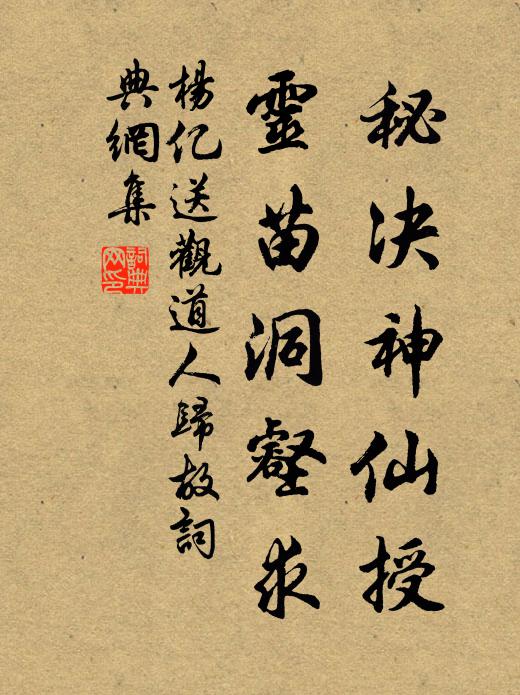 秘决神仙授
靈苗洞壑求
楊亿送觀道人歸故詞
典網集
詞典网印